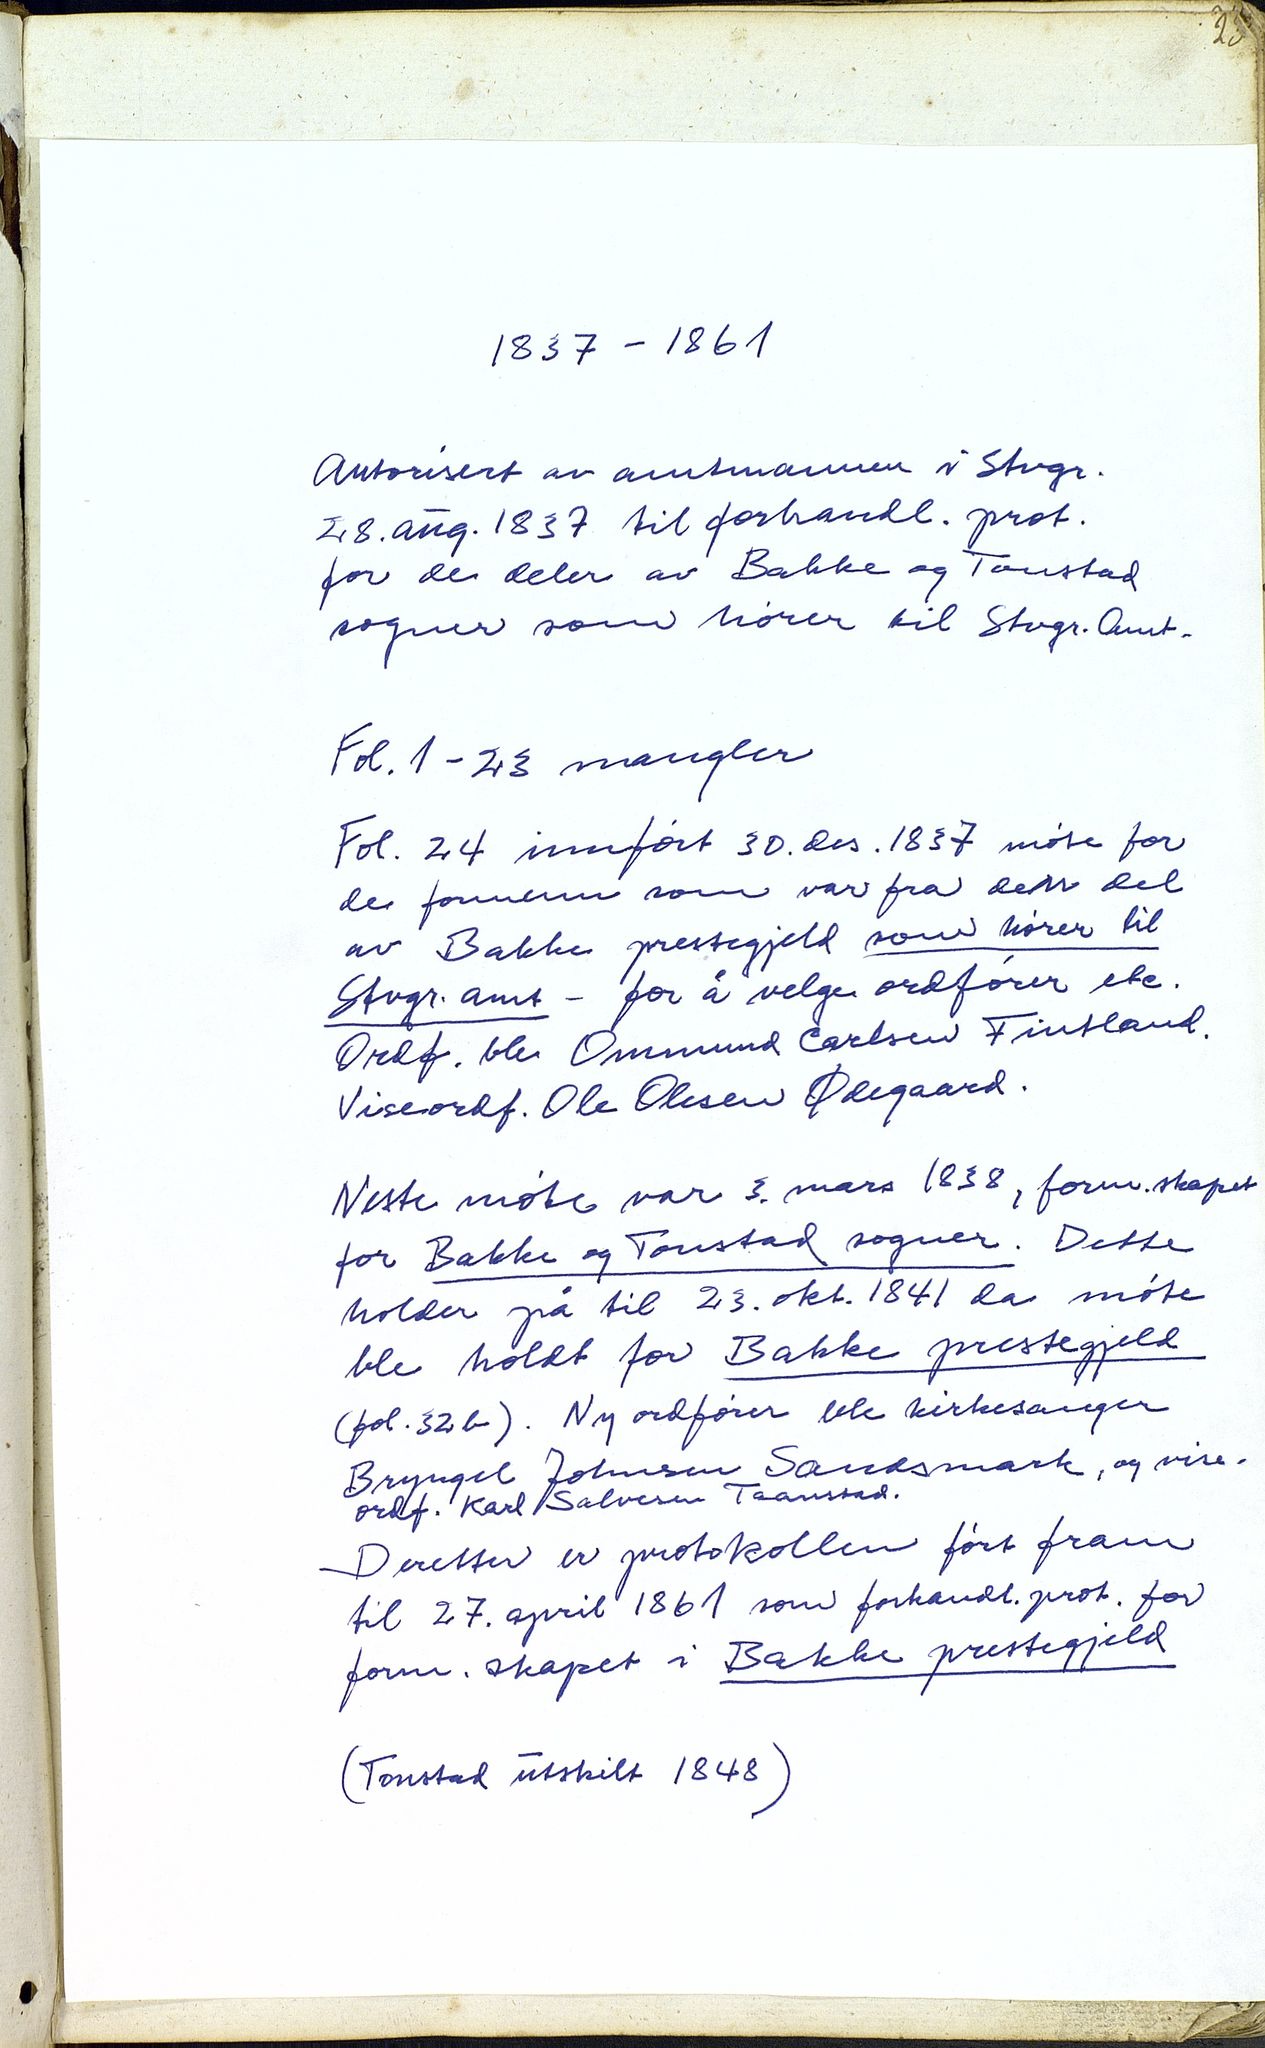 23
1837 - 1861
Autorisert av amtmannen i Stvgr.
28. aug. 1837 til forhandl. prot.
for de deler av Bakke og Tonstad
sogner som hører til Stvgr. Amt.
Fol. 1 - 23 mangler
Fol. 24 innført 30. des. 1837 møte for
de formenn som var fra den del
av Bakke prestegjeld som hører til
Stvgr. amt - for å velge ordfører etc.
Ordf. ble Ommund Carlsen Fintland.
Viseordf. Ole Olesen Ødegaard.
Neste møte var 3. mars 1838, form.skapet
for Bakke og Tonstad sogner. Dette
holder på til 23. okt. 1841 da møte
ble holdt for Bakke prestegjeld
(fol. 32b). Ny ordfører ble kirkesanger
Bryngel Johnsen Sandsmark, og vise-
ordf. Karl Salvesen Taanstad.
Deretter er protokollen ført fram
til 27. april 1861 som forhandl. prot. for
form.skapet i Bakke prestegjeld
(Tonstad utskilt 1848)